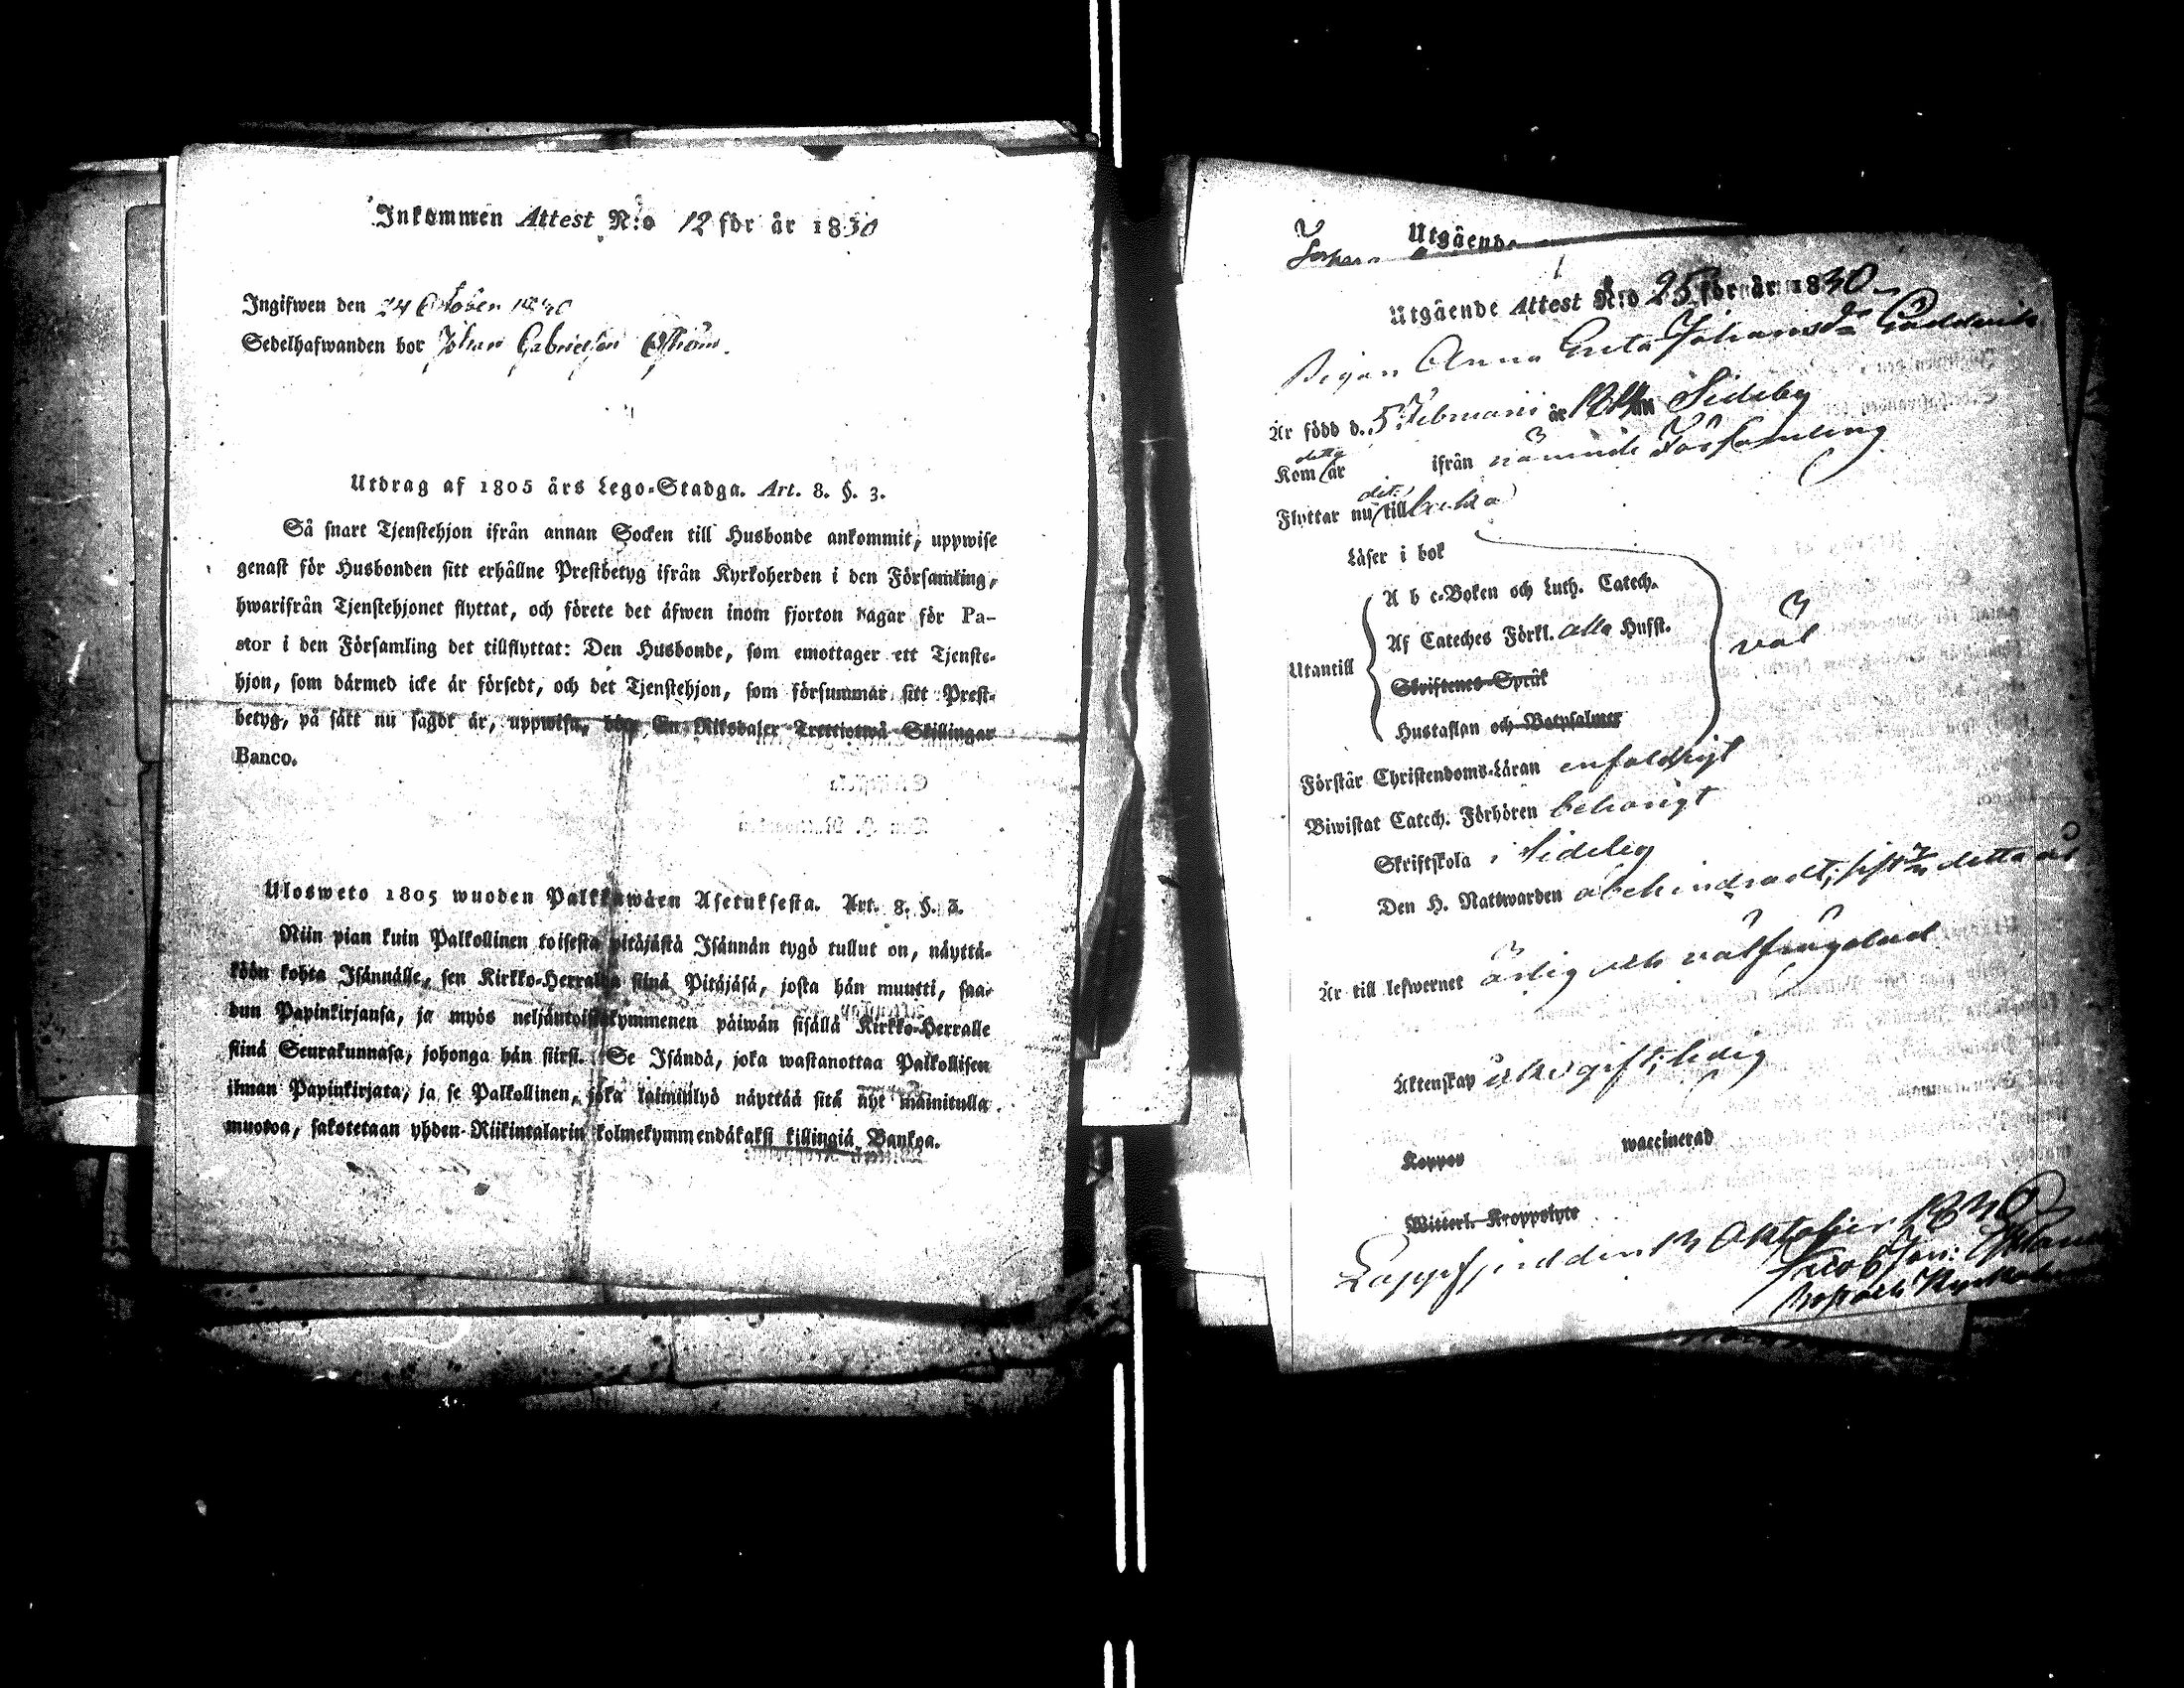 Inkommen Attest N:o 12 för år 1830
Ingifwen den 24 October 1830
Sedelhafwanden bor Johan Gabrielsson
Utdrag af 1805 års Lego-Stadga. Art. 8. §. 3.
Så snart Tjenstehjon ifrån annan Socken till Husbonde ankommit, uppwise
genast för Husbonden sitt erhållne Prestbetyg ifrån Kyrkoherden i den Församling,
hwarifrån Tjenstehjonet flyttat, och förete det äfwen inom fjorton dagar för Pa-
stor i den Församling det tillflyttat: Den Husbonde, som emottager ett Tjenste-
hjon, som därmed icke är försedt, och det Tjenstehjon, som försummar sitt Prest-
betyg, på sätt nu sagdt är, uppwisa, böte En Riksdaler Trettiotwå Skillingar
Banco.
Ulosweto 1805 wuoden Palkkawäen Asetuksesta. Art. 8. §. 3.
Niin pian kuin Palkollinen toisesta pitäjästä Isännän tygö tullut on, näyttä-
köön kohta Isännälle, sen Kirkko-Herralta siinä Pitäjäsä, josta hän muutti, saa-
dun Papinkirjansa, ja myös neljäntoistakymmenen päiwän sisällä Kirkko-Herralle
siinä Seurakunnasa, johonga hän siirsi. Se Isändä, joka wastanottaa Palkollisen
ilman Papinkirjata, ja se Palkollinen, joka laiminlyö näyttää sitä nyt mainitulla
muotoa, sakotetaan yhden Riikintalarin kolmekymmendäkaksi killingiä Bankoa.
Utgående
Utgående Attest N:o 25 för år 1830
Pigan Anna Greta Johansdr
Är född d. 5 Februarii år i Sideby
Kom detta år ifrån nämnde Församling
Flyttar nu till dit
Läser i bok
A b c-Boken och Luth. Catech.
Af Cateches Förkl. alla Hufst.
Utantill
Skriftenes Språk
väl
Hustaflan och Botpsalmer
Förstår Christendoms-Läran enfaldigt
Biwistat Catech. Förhören behörigt
Skriftskola i Sideby
Den H. Nattwarden obehindradt, sist detta år
Är till lefwernet ärlig och välfrägdad
Äktenskap ledig
Koppor waccinerad
Witterl. Kroppslyte
Lappfjerd den 13 Oktober 1830
Jacob